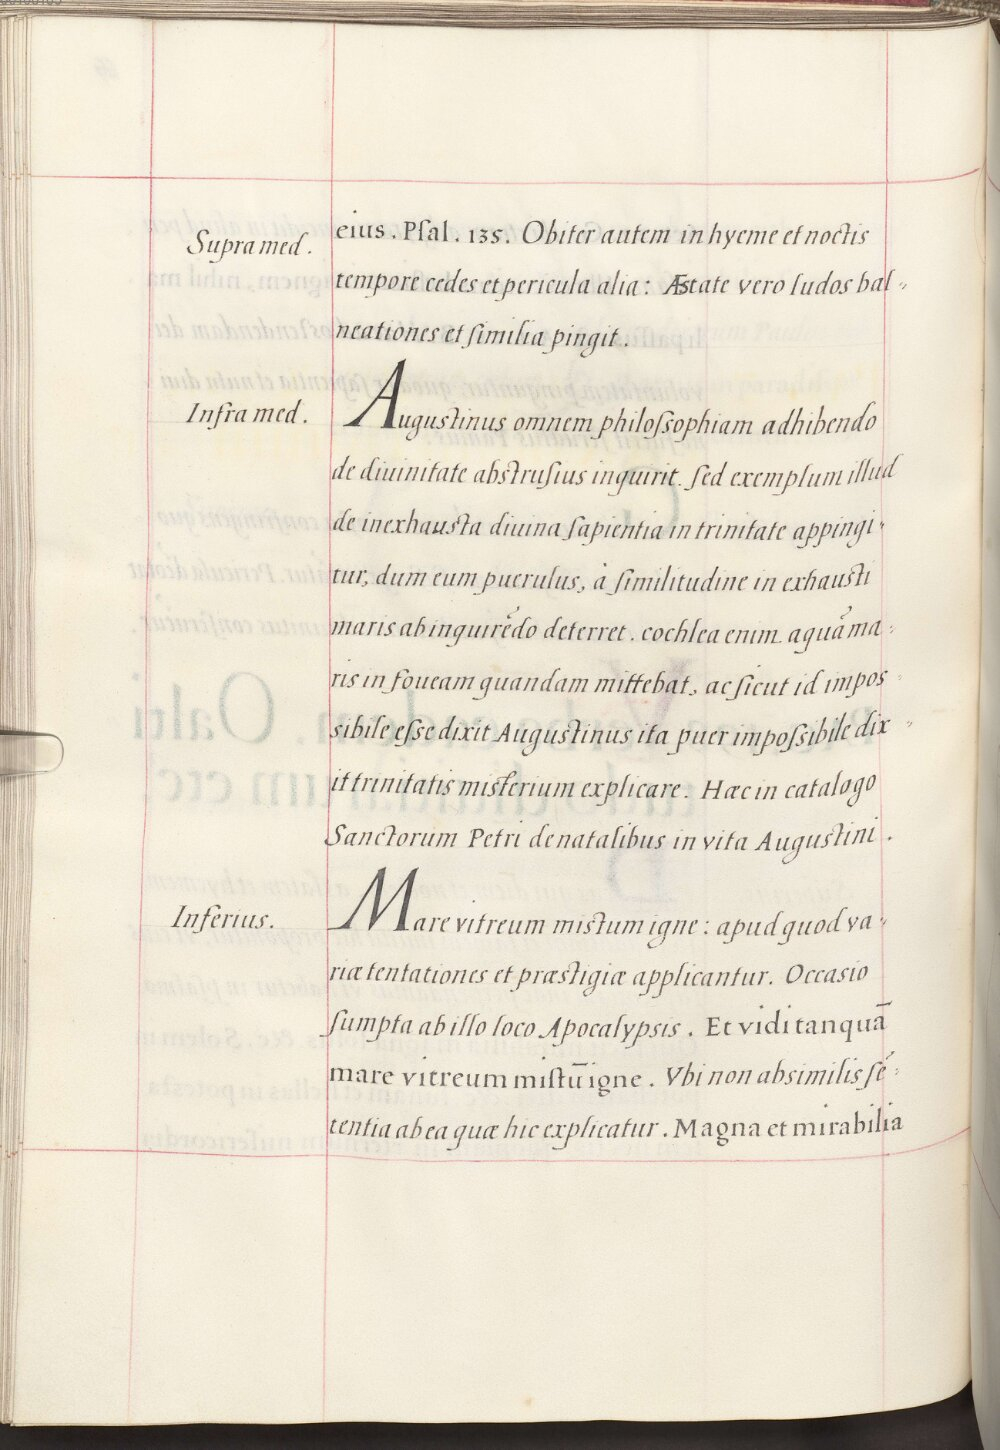 Supra med.
eius. Pſal. 135. Obiter autem in hyeme et noctis
tempore cedes et pericula alia: Æstate vero ludos bal-
neationes et ſimilia pingit.
Infra med.
Augustinus omnem philoſsophiam adhibendo
de diuinitate abstruſius inquirit. ſed exemplum illud
de inexhausta diuina ſapientia in trinitate appingi-
tur, dum eum puerulus, à ſimilitudine in exhausti
maris ab inquirēdo deterret. cochlea enim aquā ma-
ris in foueam quandam mittebat, ac ſicut id impos-
sibile eſse dixit Augustinus ita puer impoſsibile dix-
it trinitatis misterium explicare. Hæc in catalogo
Sanctorum Petri de natalibus in vita Augustini.
Inferius.
Mare vitreum mistum igne: apud quod va-
riæ tentationes et præstigiæ applicantur. Occasio
ſumpta ab illo loco Apocalypsis. Et vidi tanquā
mare vitreum miſtū igne. Vbi non absimilis ſē-
tentia ab ea quæ hic explicatur. Magna et mirabilia